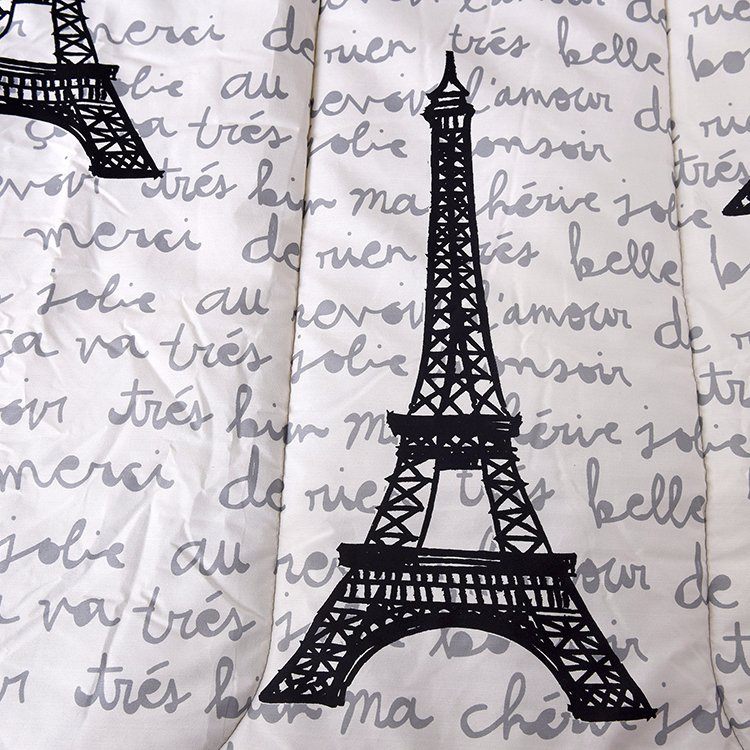 merci de rien trés belle
jolie au revoir l'amour de
ça va trés jolie bonsoir
revoir trés bien ma chérie jolie
merci de rien trés belle
jolie au revoir l'amour de
ça va trés jolie bonsoir
trés bien ma chérie jolie
merci de rien trés belle
jolie au revoir l'amour de
ça va trés jolie bonsoir
trés bien ma chérie